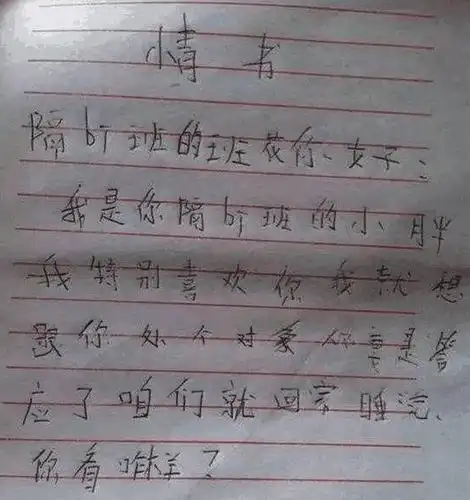 情者
隔bì班的班花你、女子：
我是你隔bì班的小、胖
我特别喜欢你我就想
跟你处个对象你要是答
应了咱们就回家睡觉、
你看咋样？